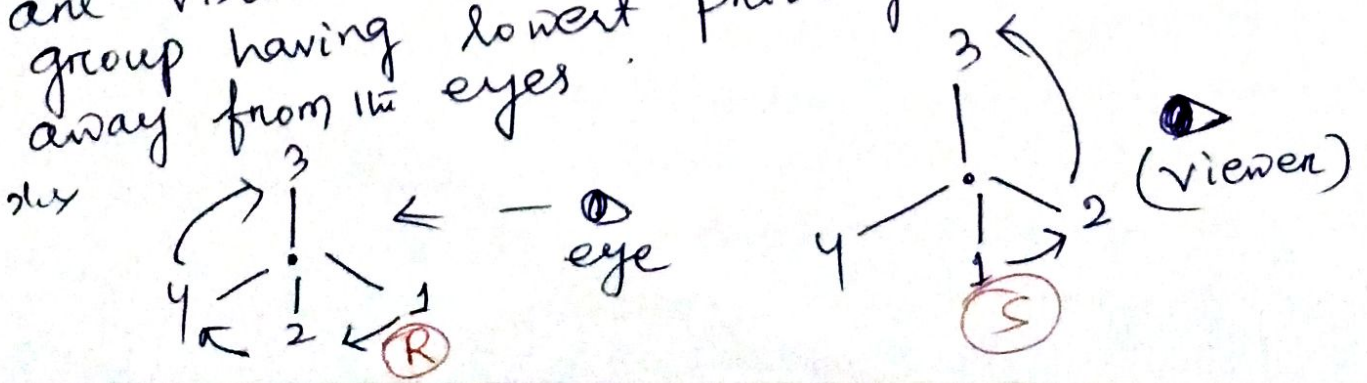 group having lowest
away from the eyes.
3
4
2
1
R
eye
3
4
1
2
S
(viewer)